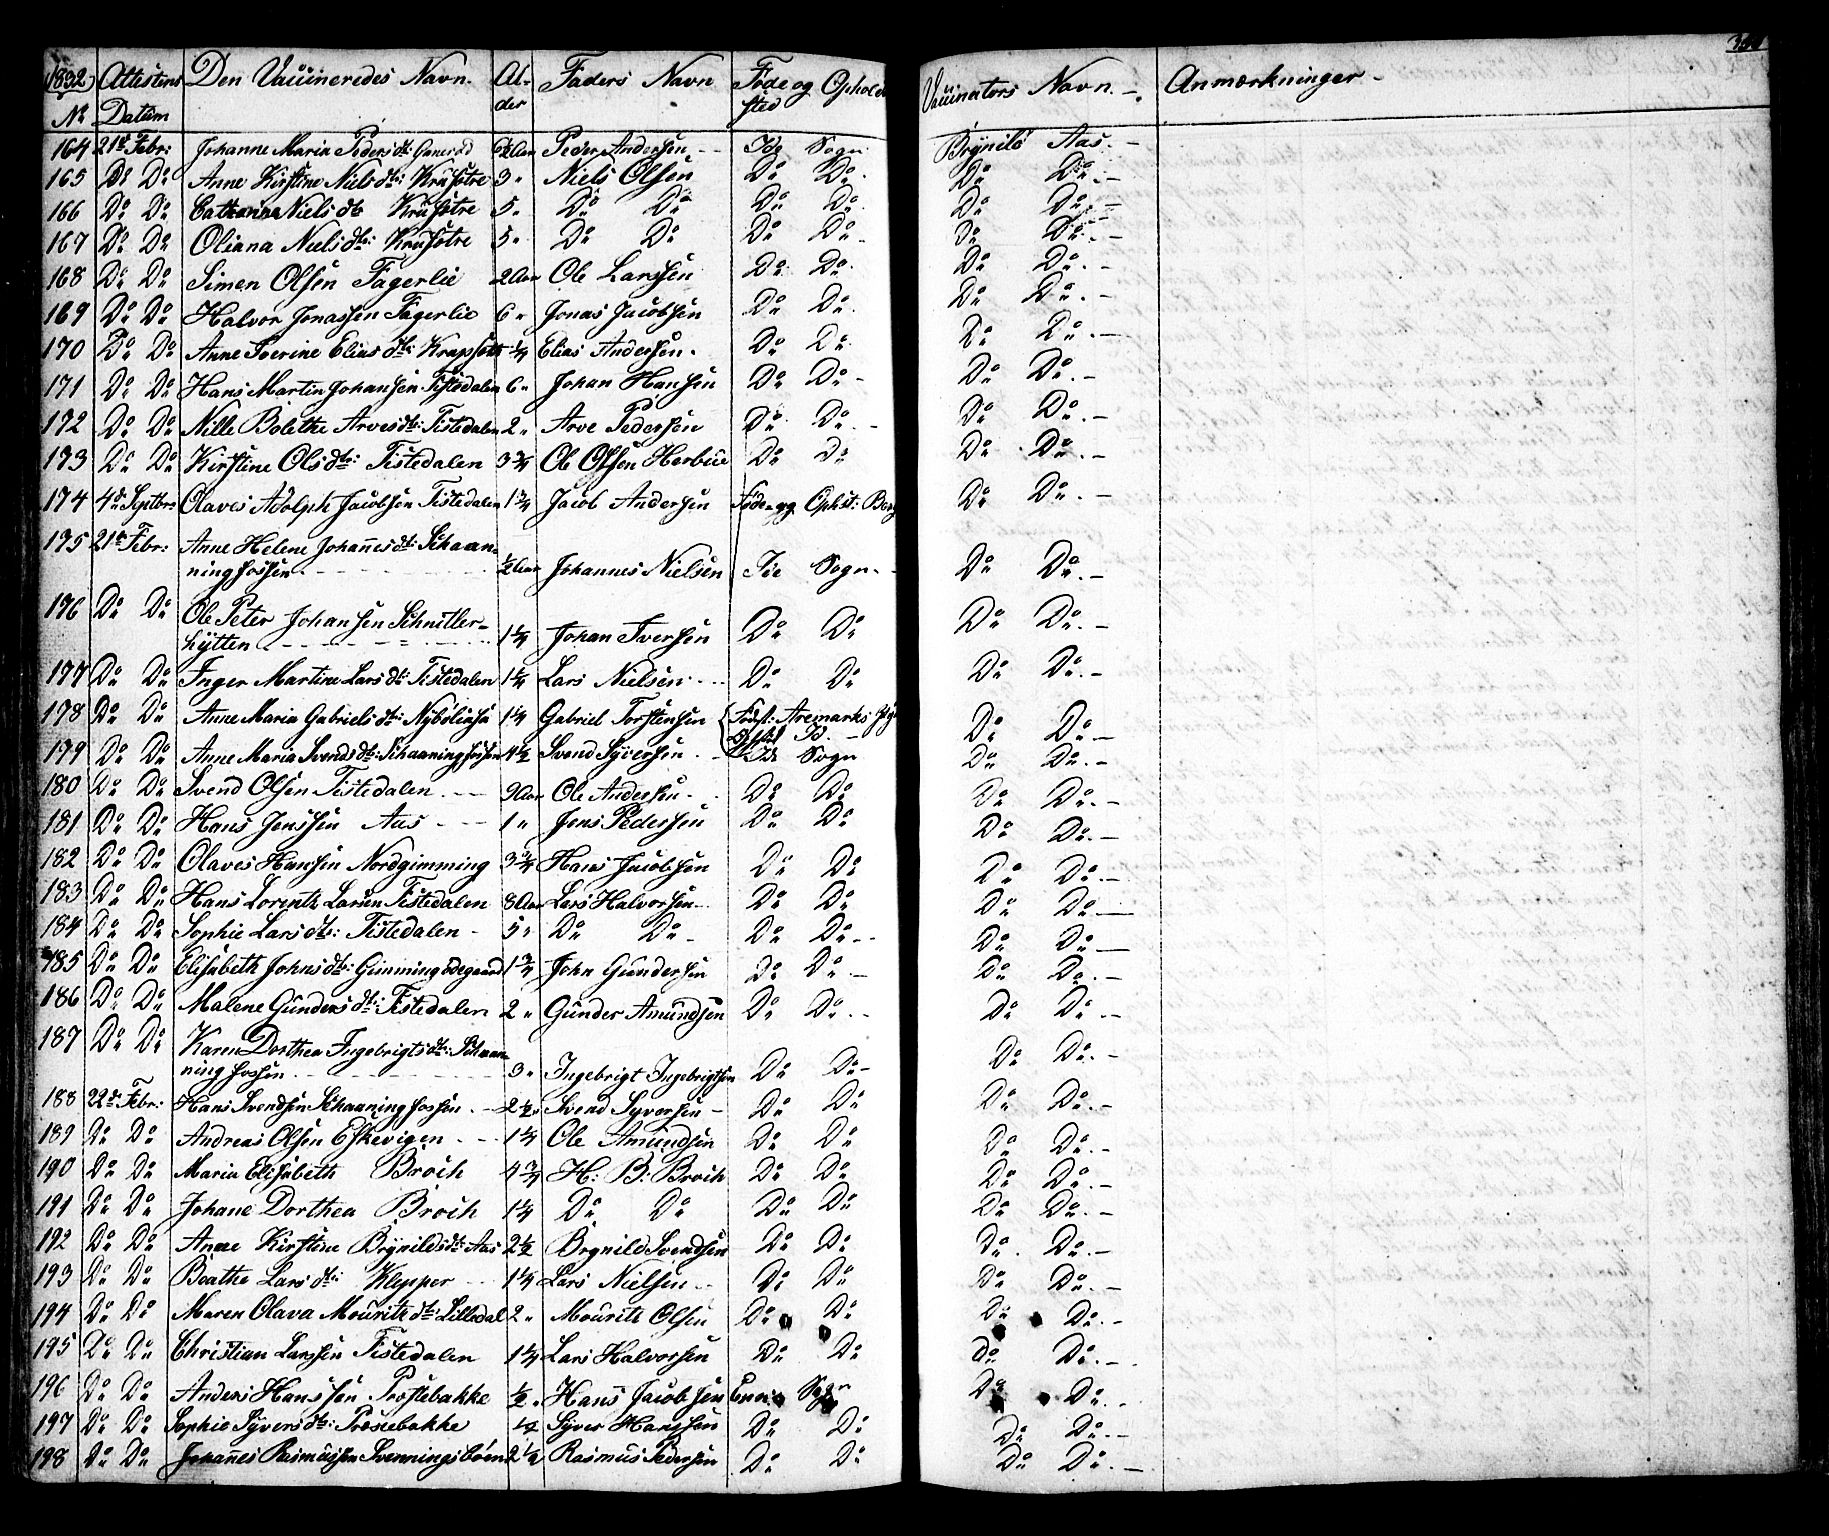 1832 Attestens Den Vaccineredes Navn. Al- Faders Navn Føde og Ophold Vaccinators Navn. Anmærkninger
No Datum der sted
164 21de Febr: Johanne Maria Peders dtr Peder Andersen Ide Sogn Brynild Aas.
165 Do Do Anne Kirstine Niels dtr: Krusøtre 3 " Niels Olsen Do Do Do Do
166 Do Do Cathrina Niels dtr Krusøtre 5 " Do Do Do Do Do Do
167 Do Do Oliana Niels dtr: Krusøtre 5 " Do Do Do Do Do Do
168 Do Do Simen Olsen Fagerlie 2 Aar Ole Larssen Do Do Do Do
169 Do Do Halvor Jonassen Fagerlie 6 " Jonas Jacobsen Do Do Do Do
170 Do Do Anne Severine Elias dtr: 1/4 Elias Andersen Do Do Do Do
171 Do Do Hans Martin Johansen Tistedalen 6 " Johan Hansen Do Do Do Do
172 Do Do Nille Bolethe Arves dtr: Tistedalen 2 " Arve Pedersen Do Do Do Do
173 Do Do Kirstine Ols dtr: Tistedalen 3 3/4 Ole Olsen Herbue Do Do Do Do
174 4de Septbr: Olaves Adolph Jacobsen Tistedalen 1 3/4 Jacob Andersen Føde og Ophst: Berg Do Do
175 21de Febr: Anne Helene Johannes dtr: Schaan-
ningfossen 1/2 Aar Johannes Nielsen Ide Sogn Do Do
176 Do Do Ole Peter Johansen Schnitler-
hytten 1 1/4 Johan Iversen Do Do Do Do
177 Do Do Inger Martine Lars dtr: Tistedalen 1 1/4 Lars Nielsen Do Do Do Do
178 Do Do Anne Maria Gabriels dtr: 1 1/4 Gabriel Torstensen Fødst: Aremarks Do Do
Ophst Id.
179 Do Do Anne Maria Svends dtr: Schaaningfossen 4 1/2 Svend Syversen Ide Sogn Do Do
180 Do Do Svend Olsen Tistedalen 9 Aar Ole Andersen Do Do Do Do
181 Do Do Hans Jenssen Aas 1 " Jens Pedersen Do Do Do Do
182 Do Do Olaves Hansen Nordgimming 3 3/4 Hans Jacobsen Do Do Do Do
183 Do Do Hans Lorentz Larsen Tistedalen 8 Aar Lars Halvorsen Do Do Do Do
184 Do Do Sophie Lars dtr: Tistedalen 5 " Do Do Do Do Do Do
185 Do Do Elisabeth Johns dtr: Gimmingødegaard 1 3/4 John Gundersen Do Do Do Do
186 Do Do Malene Gunders dtr: Tistedalen 2 " Gunder Amundsen Do Do Do Do
187 Do Do Karen Dorthea Ingebrigts dtr: Schaan-
ningfossen 3 " Ingebrigt Ingebrigtsen Do Do Do Do
188 22de Febr: Hans Svendsen Schaaningfossen 2 1/2 " Svend Syversen Do Do Do Do
189 Do Do Andreas Olsen Eskevigen 1 1/4 Ole Amundsen Do Do Do Do
190 Do Do Maria Elisabeth Broch 4 3/4 H: B: Broch Do Do Do Do
191 Do Do Johane Dorthea Broch 1 1/4 Do Do Do Do Do Do
192 Do Do Anne Kirstine Brynilds dtr: Aas 2 1/2 Brynild Svendsen Do Do Do Do
193 Do Do Beathe Lars dtr: Klepper 1 1/4 Lars Nielsen Do Do Do Do
194 Do Do Maren Olava Mouritz dtr: Lilledal 2 " Mouritz Olsen Do Do Do Do
195 Do Do Christian Larssen Tistedalen 1 1/4 Lars Halvorsen Do Do Do Do
196 Do Do Anders Hanssen Prøstebakke 1/2 " Hans Jacobsen Sogn Do Do
197 Do Do Sophie Syvers dtr: Prøstebakke 1/2 Syver Hanssen Do Do Do Do
198 Do Do Johannes Rasmussen 2 1/4 Rasmus Pedersen Do Do Do Do